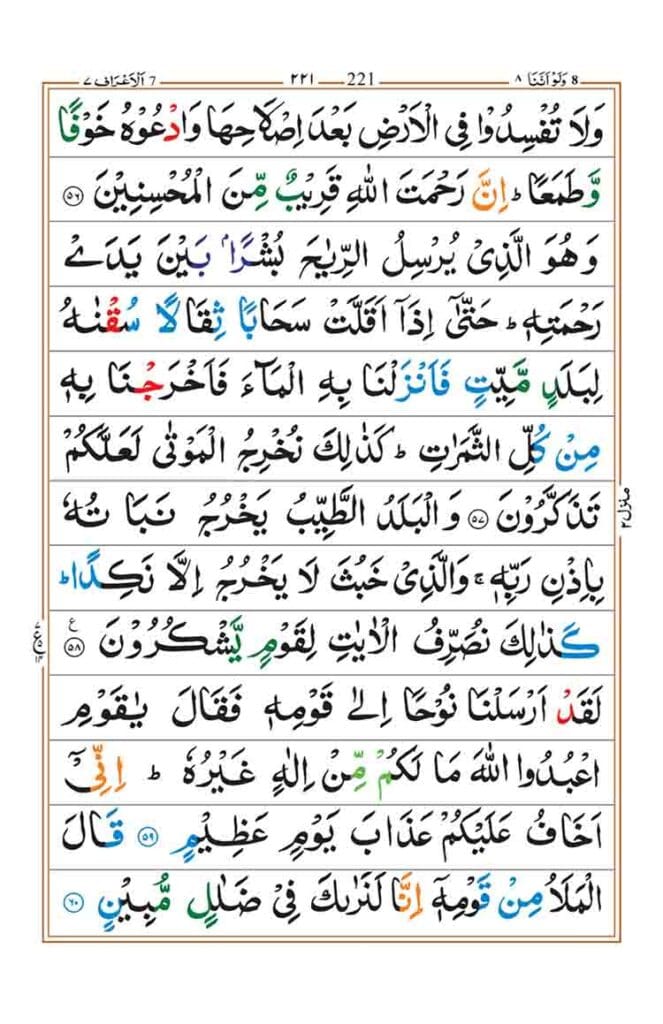 ٨ وَلَوْ اَنَّنَا 8 221 ٢٢١ 7 اَلْاَعْرَاف ٧
وَلَا تُفْسِدُوْا فِى الْاَرْضِ بَعْدَ اِصْلَاحِهَا وَادْعُوْهُ خَوْفًا
وَّطَمَعًا ؕ اِنَّ رَحْمَتَ اللّٰهِ قَرِيْبٌ مِّنَ الْمُحْسِنِيْنَ ٥٦
وَهُوَ الَّذِىْ يُرْسِلُ الرِّيٰحَ بُشْرًاۢ بَيْنَ يَدَىْ
رَحْمَتِهٖ ؕ حَتّٰٓى اِذَاۤ اَقَلَّتْ سَحَابًا ثِقَالًا سُقْنٰهُ
لِبَلَدٍ مَّيِّتٍ فَاَنْزَلْنَا بِهِ الْمَآءَ فَاَخْرَجْنَا بِهٖ
مِنْ كُلِّ الثَّمَرٰتِ ؕ كَذٰلِكَ نُخْرِجُ الْمَوْتٰى لَعَلَّكُمْ
تَذَكَّرُوْنَ ٥٧ وَالْبَلَدُ الطَّيِّبُ يَخْرُجُ نَبَاتُهٗ
بِاِذْنِ رَبِّهٖ ۚ وَالَّذِىْ خَبُثَ لَا يَخْرُجُ اِلَّا نَكِدًا ؕ
كَذٰلِكَ نُصَرِّفُ الْاٰيٰتِ لِقَوْمٍ يَّشْكُرُوْنَ ٥٨ ع
لَقَدْ اَرْسَلْنَا نُوْحًا اِلٰى قَوْمِهٖ فَقَالَ يٰقَوْمِ
اعْبُدُوا اللّٰهَ مَا لَكُمْ مِّنْ اِلٰهٍ غَيْرُهٗ ؕ اِنِّىْۤ
اَخَافُ عَلَيْكُمْ عَذَابَ يَوْمٍ عَظِيْمٍ ٥٩ قَالَ
الْمَلَاُ مِنْ قَوْمِهٖۤ اِنَّا لَنَرٰىكَ فِىْ ضَلٰلٍ مُّبِيْنٍ ٦٠
منزل ٢